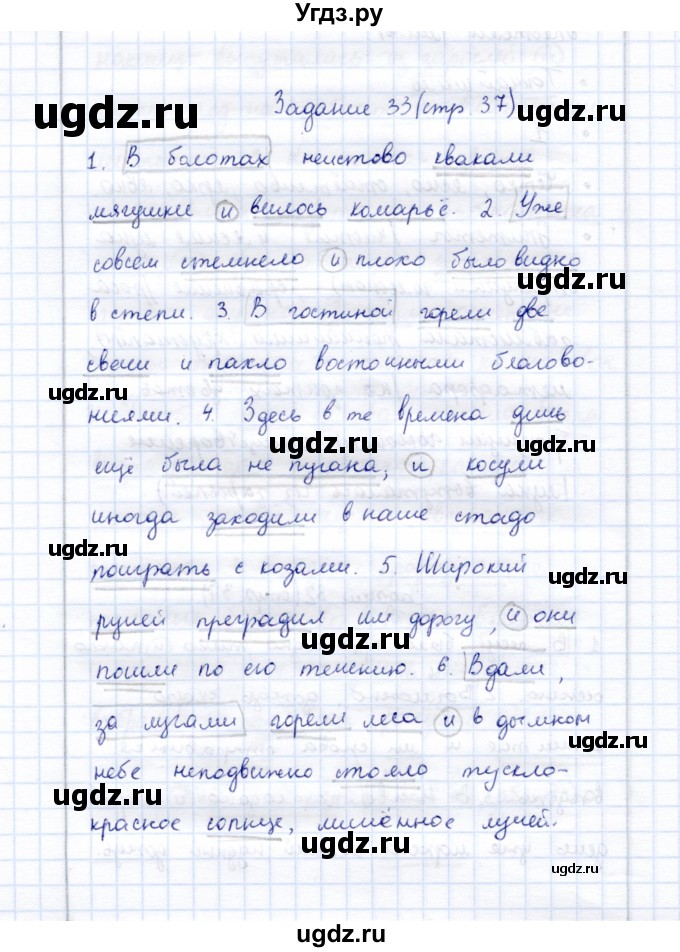 Угдз.ру
Задание 33 (стр. 37)
1. В болотах неистово квакали
лягушки и вилось комарьё. 2. Уже
совсем стемнело и плохо было видно
в степи. 3. В гостиной горели две
свечи и пахло восточными благово-
ниями. 4. Здесь в те времена дичь
ещё была не пугана, и косули
иногда заходили в наше стадо
поиграть с козами. 5. Широкий
ручей преградил им дорогу, и они
пошли по его течению. 6. Вдали,
за лугами горели леса и в дымном
небе неподвижно стояло тускло-
красное солнце, лишённое лучей.
ugdz.ru
ugdz.ru
ugdz.ru
ugdz.ru
ugdz.ru
ugdz.ru
ugdz.ru
ugdz.ru
ugdz.ru
ugdz.ru
ugdz.ru
ugdz.ru
Угдз.ру